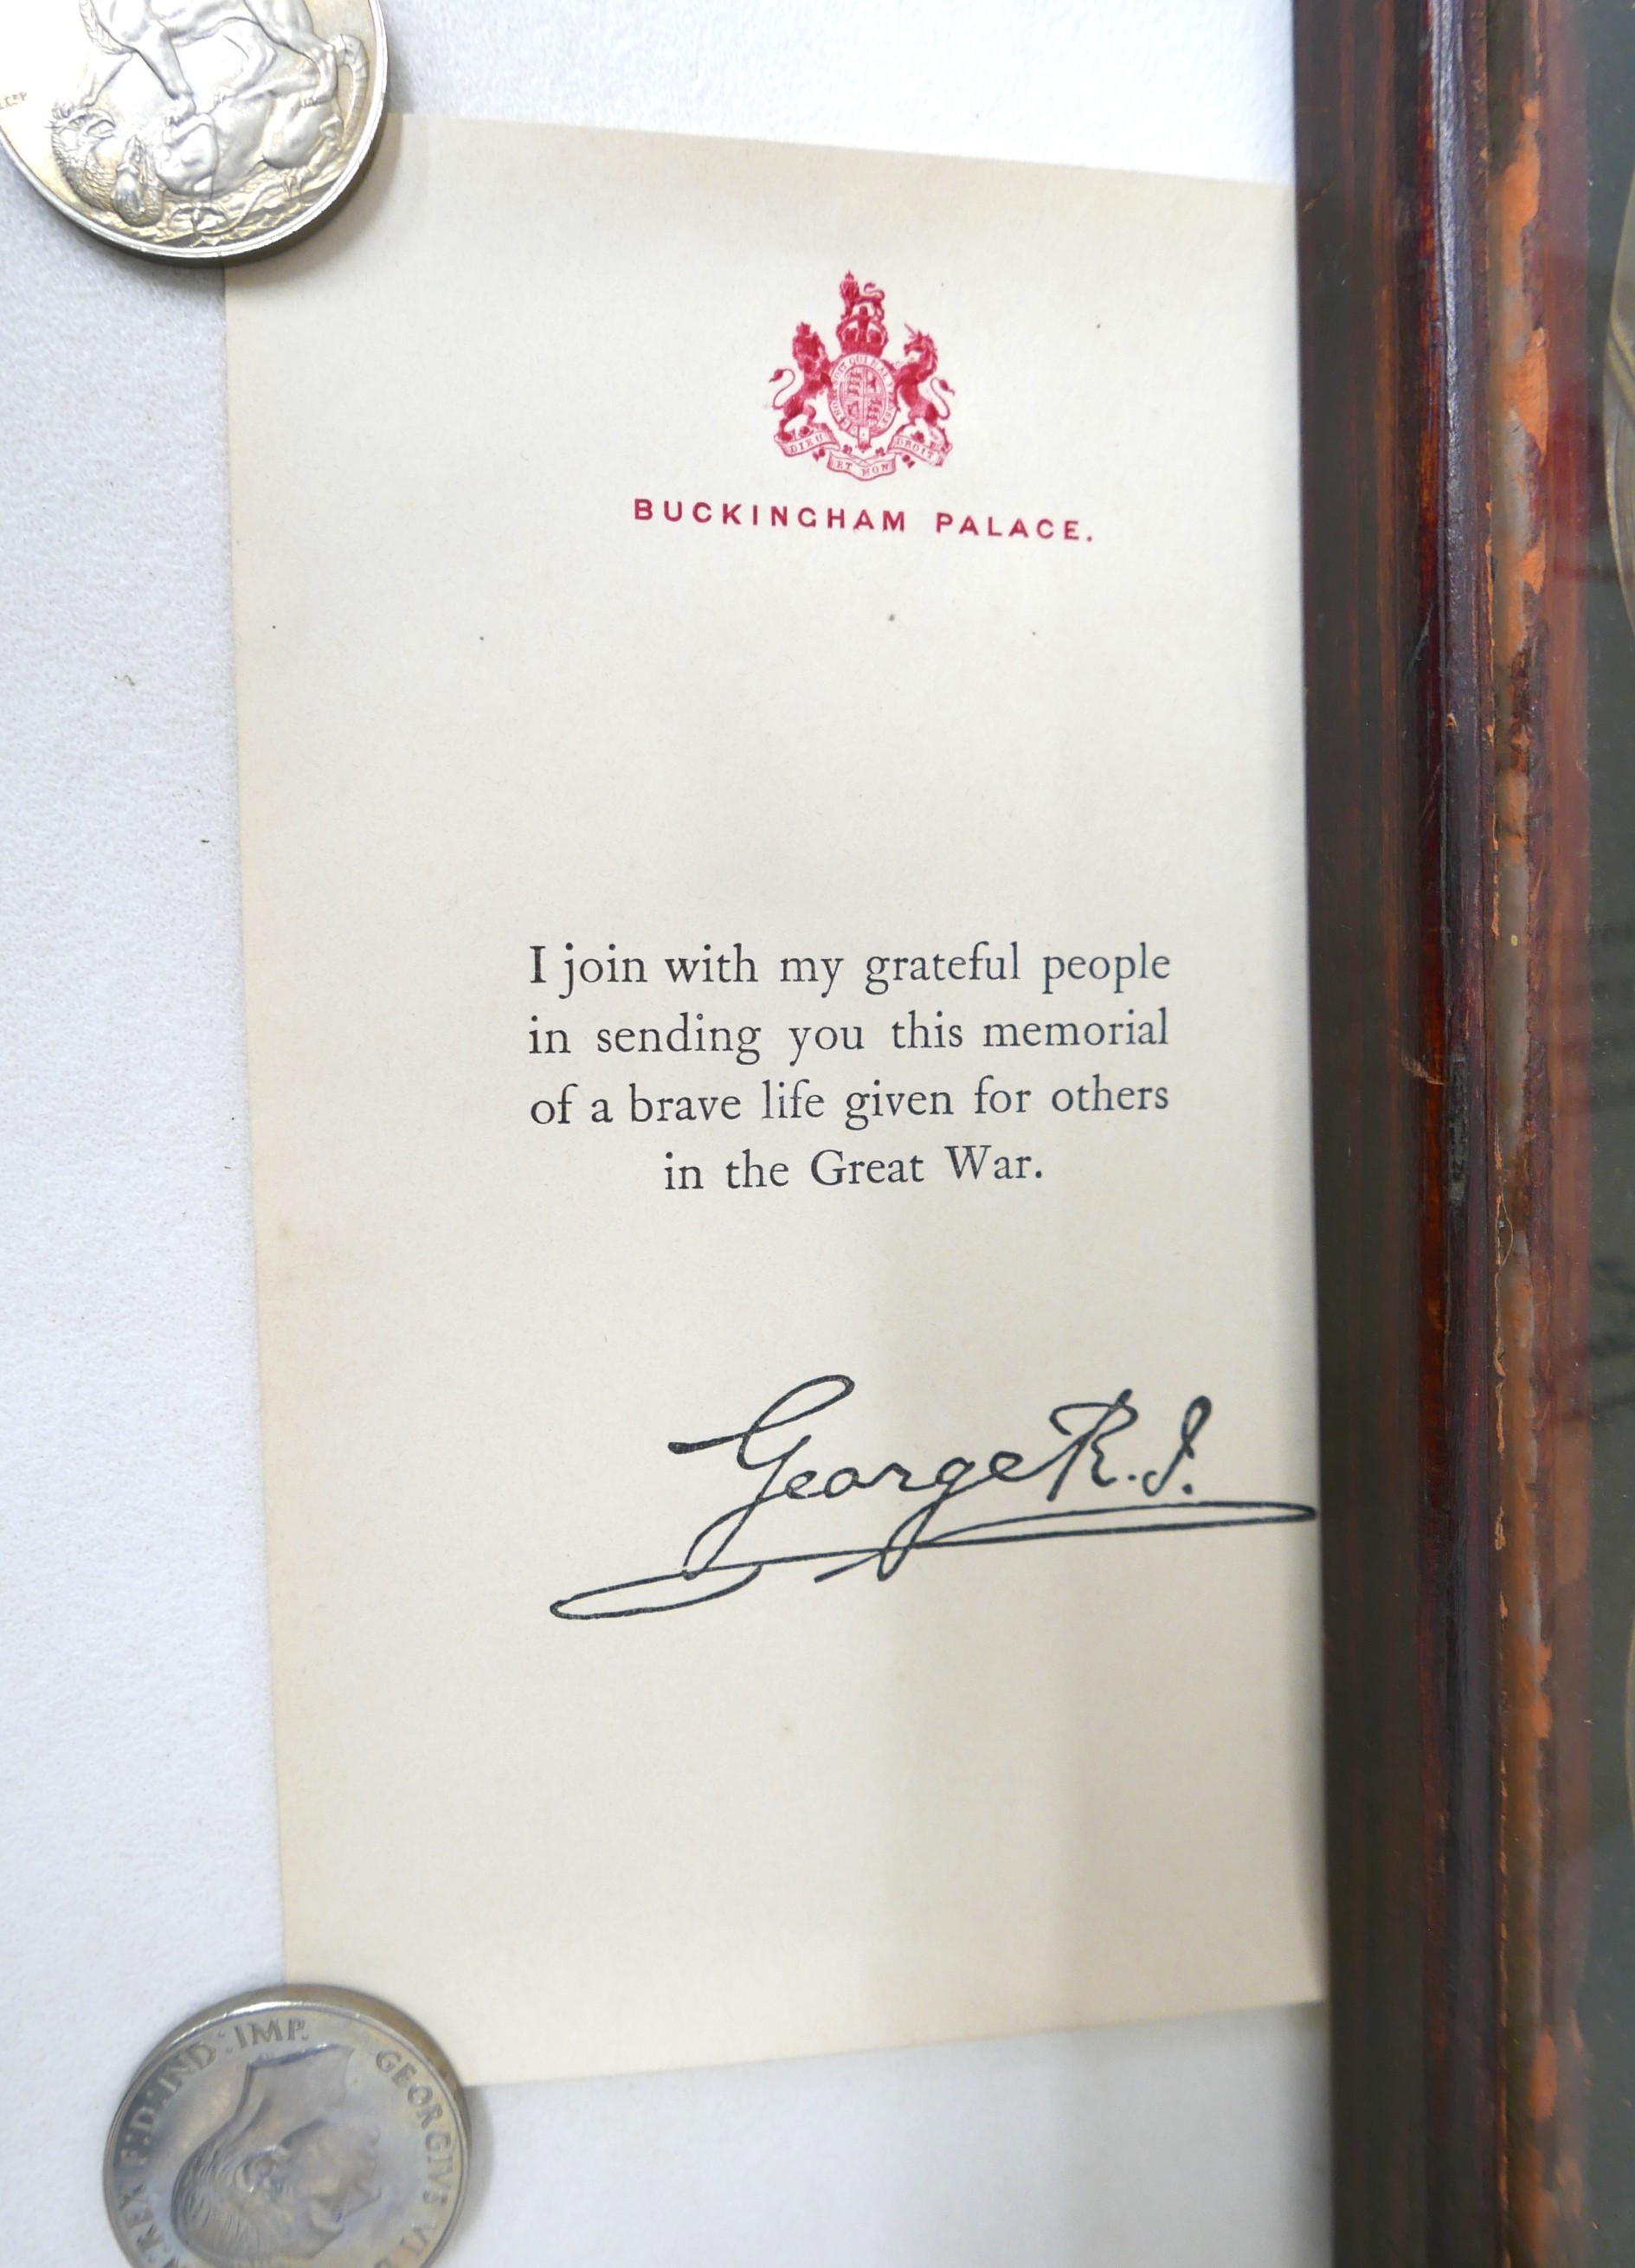 DIEU ET MON DROIT
BUCKINGHAM PALACE.
I join with my grateful people
in sending you this memorial
of a brave life given for others
in the Great War.
George R.I.
REX F:D:IND:IMP. GEORGIVS VI